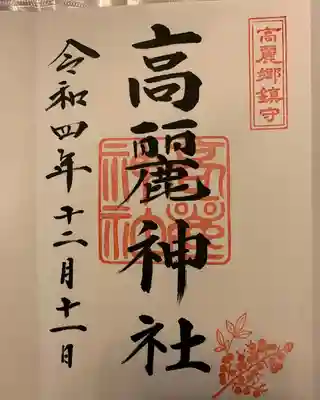 高麗郷鎮守
高麗神社
令和四年十二月十一日